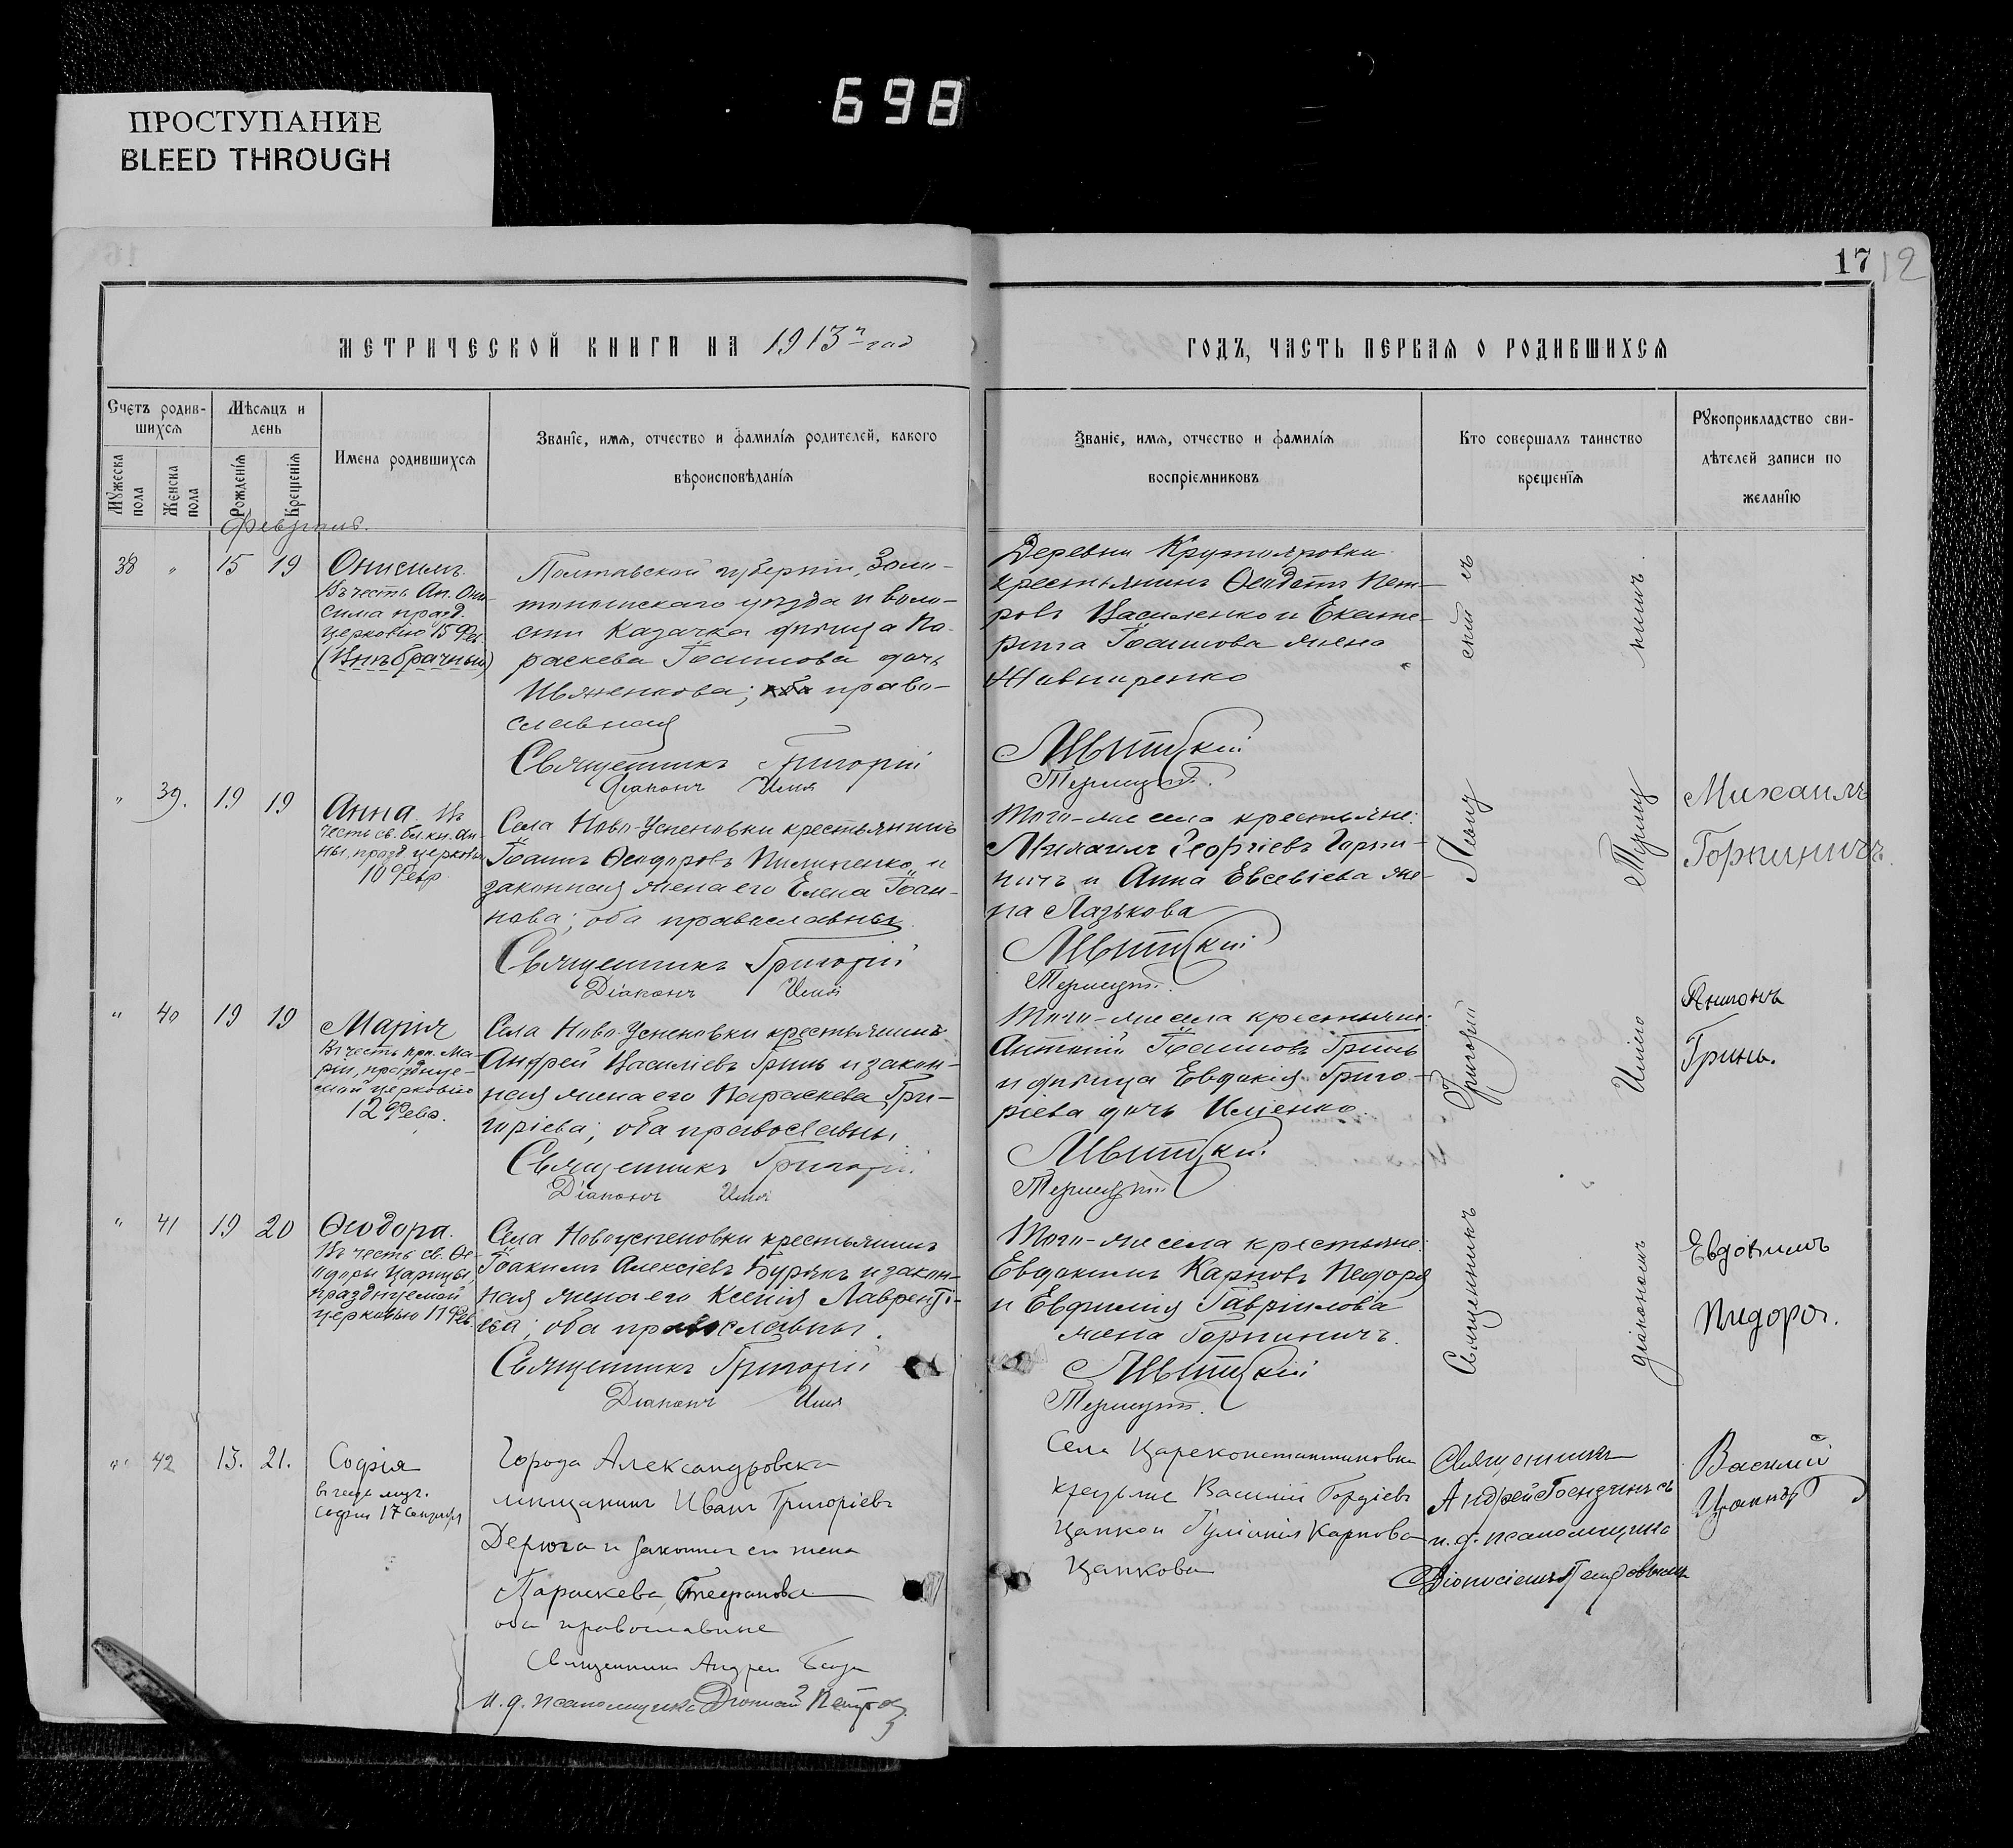 698
ПРОСТУПАНИЕ
BLEED THROUGH
17 12
МЕТРИЧЕСКОЙ КНИГИ НА 1913й год
ГОДЪ, ЧАСТЬ ПЕРВАЯ О РОДИВШИХСЯ
Счетъ родив-
шихся
Мужеска
пола
Женска
пола
Мѣсяцъ и
день
Рожденія
Крещенія
Имена родившихся
Званіе, имя, отчество и фамилія родителей, какого
вѣроисповѣданія
Званіе, имя, отчество и фамилія
воспріемниковъ
Кто совершалъ таинство
крещенія
Рукоприкладство сви-
дѣтелей записи по
желанію
Февраль.
38 " 15 19
Онисимъ
Въ честь Ап. Они-
сима празд.
церковію 15 Фев.
(Внѣбрачный)
Полтавской губерніи, Золо-
тоношскаго уѣзда и воло-
сти казачка дѣвица Па-
раскева Іоаннова дочь
православная
Священникъ Григорій
Діаконъ Илія
Деревни Крутояровки
крестьянинъ Ѳеодотъ Пет-
ровъ Василенко и Екате-
рина Іоаннова жена
Жавниренко
" 39. 19 19
Анна. Въ
честь св. бл. кн. Ан-
ны, празд. церковію
10 Февр.
Села Ново-Успеновки крестьянинъ
Іоаннъ Ѳеодоровъ Пилипенко и
законная жена его Елена Іоан-
нова; оба православны
Священникъ Григорій
Діаконъ Илія
Того-же села крестьяне:
Михаилъ Георгіевъ Горпи-
ничъ и Анна Евсевіева же-
на Лазькова
Михаилъ
Горпиничъ.
" 40 19 19
Марія
Въ честь прп. Ма-
ріи, празднуе-
мой церковію
12 Февр.
Села Ново-Успеновки крестьянинъ
Андрей Василіевъ Гринь и закон-
ная жена его Параскева Гри-
горіева; оба православны.
Священникъ Григорій
Діаконъ Илія
Того-же села крестьяне:
Антоній Іоанновъ Гринь
и дѣвица Евдокія Григо-
ріева дочь Ищенко.
Антонъ
Гринь.
" 41 19 20
Ѳеодора.
Въ честь св. Ѳе-
одоры Царицы,
празднуемой
церковію 11 Фев.
Села Новоуспеновки крестьянинъ
Іоакимъ Алексіевъ Бурякъ и закон-
ная жена его Ксенія Лавренті-
ева; оба православны.
Священникъ Григорій
Діаконъ Илія
Того-же села крестьяне:
Евдокимъ Карповъ Педоря
и Евфимія Гавріилова
жена Горпиничъ.
Священникъ Григорій
діакономъ Иліею
Евдокимъ
" 42 13. 21.
Софія
въ честь муч.
Софіи 17 Сентября
Города Александровска
мѣщанинъ Иванъ Григоріевъ
Дерюга и законная его жена
Параскева Стефанова
оба православные
Священникъ Андрей
и. д. псаломщика
Села Цареконстантиновки
крестьяне Василій Гордіевъ
Цапкои Іуліанія Карпова
Цапкова
Священникъ
Андрей
и. д. псаломщика
Василій